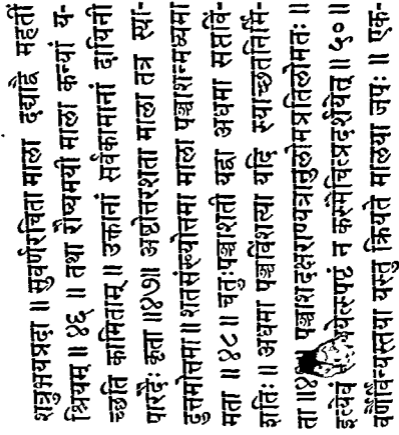 शत्रुभयप्रदा ॥ सुवर्णरचिता माला दद्याद्वै महतीं
श्रियम् ॥ ४६ ॥ तथा रौप्यमयी माला कन्यां य-
च्छति कामिताम् ॥ उक्तानां सर्वकामानां दायिनी
पारदैः कृता ॥ ४७ ॥ अष्टोत्तरशता माला तत्र स्या-
दुत्तमोत्तमा ॥ शतसंख्योत्तमा माला पञ्चाशन्मध्यमा
मता ॥ ४८ ॥ चतुःपञ्चाशती यद्वा अधमा सप्तविं-
शतिः ॥ अधमा पञ्चविंशत्या यदि स्याच्छतनिर्मि-
ता ॥ ४ पञ्चाशदक्षराण्यत्रानुलोमप्रतिलोमतः ॥
इत्येवं येत्स्पष्टं न कस्मैचित्प्रदर्शयेत् ॥ ५० ॥
वर्णैर्विन्यस्तया यस्तु क्रियते मालया जपः ॥ एक-